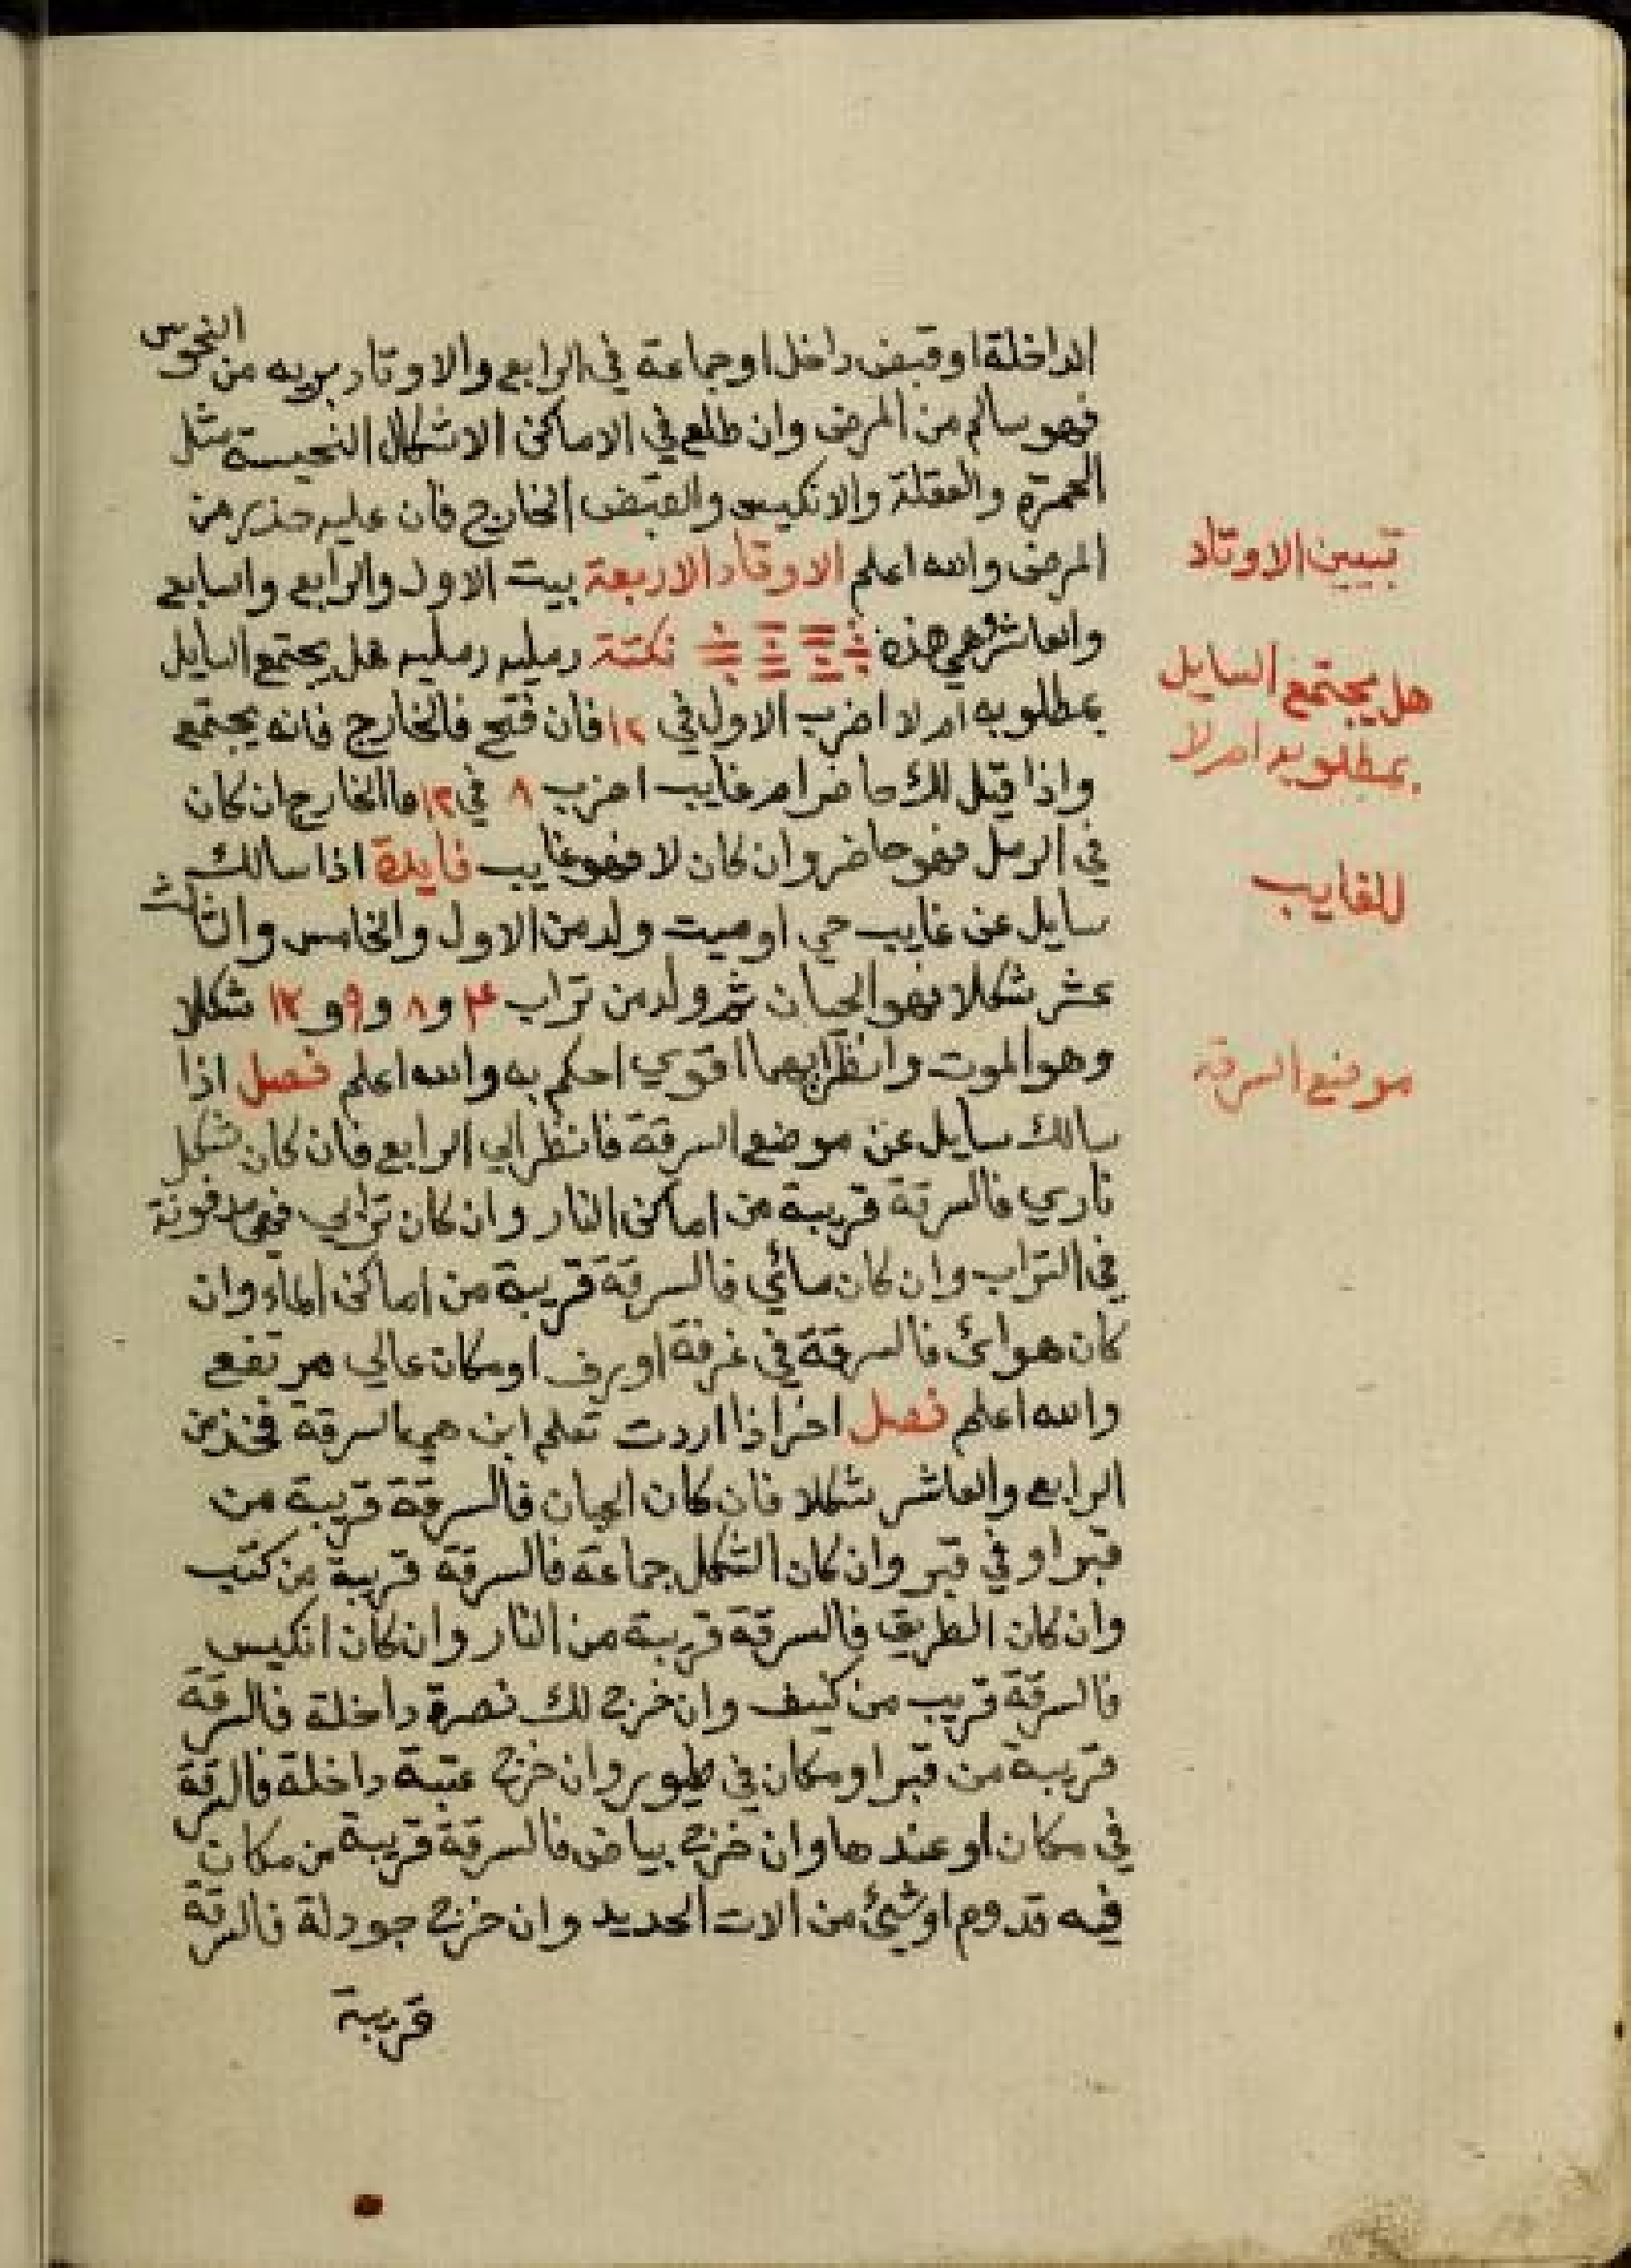 الداخلة او قبض داخل او جماعة في الرابع والاوتاد بريه من النحوس
فهو سالم من المرض وان طلع في الاماكن الاشكال النحيسة مثل
الحمرة والعقلة والانكيس والقبض الخارج فان عليه حذر من
المرض والله اعلم الاوتاد الاربعة بيت الاول والرابع والسابع
والعاشر وهي هذه نكتة رمليه رمليه هل يجتمع السايل
بمطلوبه ام لا اضرب الاول في ١٢ فان فتح فالخارج فانه يجتمع
واذا قيل لك حاضر ام غايب اضرب ٨ في ١٢ فالخارج ان كان
في الرمل فهو حاضر وان كان لا فهو غايب فايدة اذا سالك
سايل عن غايب حي او ميت ولد من الاول والخامس والثالث
عشر شكلا فهو الحيان ثم ولد من تراب ٤ و ٨ و ٩ و ١٢ شكلا
وهو الموت وانظر ايهما اقوي احكم به والله اعلم فصل اذا
سالك سايل عن موضع السرقة فانظر الي الرابع فان كان شكل
ناري فالسرقة قريبة من اماكن النار وان كان ترابي فهي مدفونة
في التراب وان كان مائي فالسرقة قريبة من اماكن الماء وان
كان هوائ فالسرقة في غرفة او رف او مكان عالي مرتفع
والله اعلم فصل اخر اذا اردت تعلم اين هي السرقة فخذ من
الرابع والعاشر شكلا فان كان الحيان فالسرقة قريبة من
قبر او في قبر وان كان الشكل جماعة فالسرقة قريبة من كتب
وان كان الطريق فالسرقة قريبة من النار وان كان انكيس
فالسرقة قريب من كنيف وان خرج لك نصرة داخلة فالسرقة
قريبة من قبر او مكان في طيور وان خرج عتبة داخلة فالسرقة
في مكان او عندها وان خرج بياض فالسرقة قريبة من مكان
فيه قدوم او شيئ من الات الحديد وان خرج جودلة فالسرقة
قريبة
تبيين الاوتاد
هل يجتمع السايل
بمطلوبه ام لا
للغايب
موضع السرقة